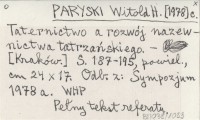 PARYSKI Witold H. [1978] c.
Taternictwo a rozwój nazew-
nictwa tatrzańskiego. –
[Kraków.] S. 187-195, powiel.,
cm 24 × 17. Odb. z: Sympozjum
1978 a. WHP
Pełny tekst referatu